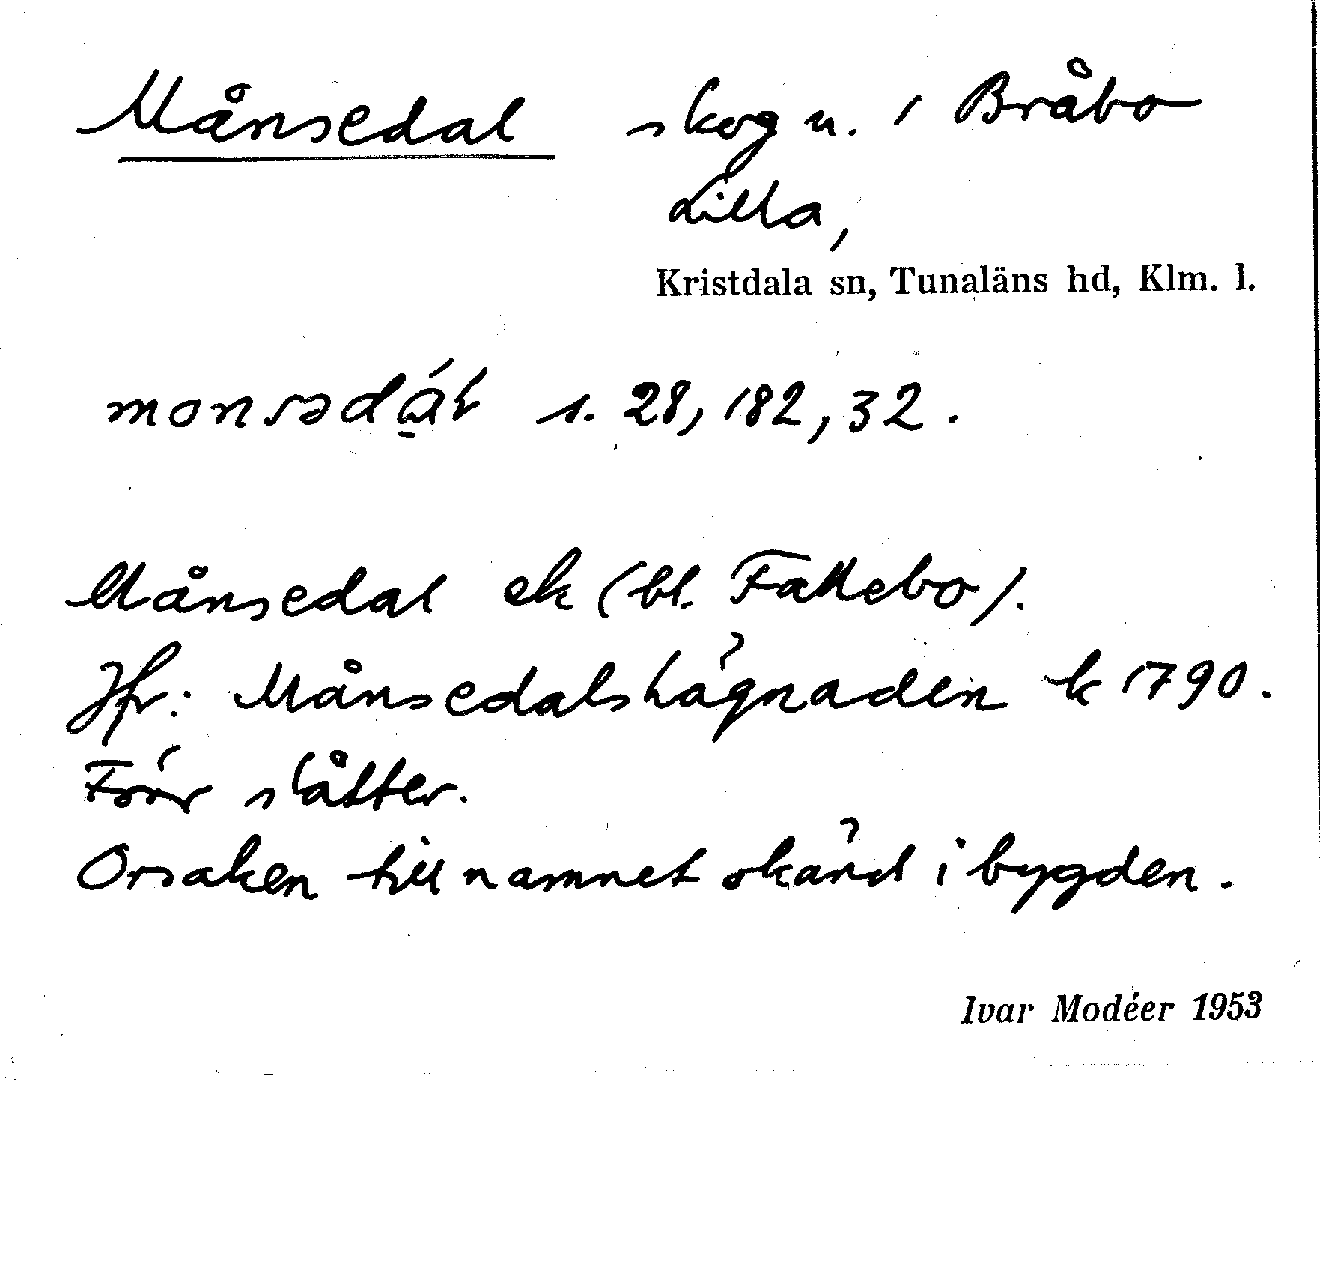 Månsedal skog u. i Bråbo
Lilla,
Kristdala sn, Tunaläns hd, Klm. l.
s. 28, 182, 32.
Månsedal ek (bl. Fallebo).
Jfr: Månsedalshägnaden k 1790.
Förr slåtter.
Orsaken till namnet okänd i bygden.
Ivar Modéer 1953